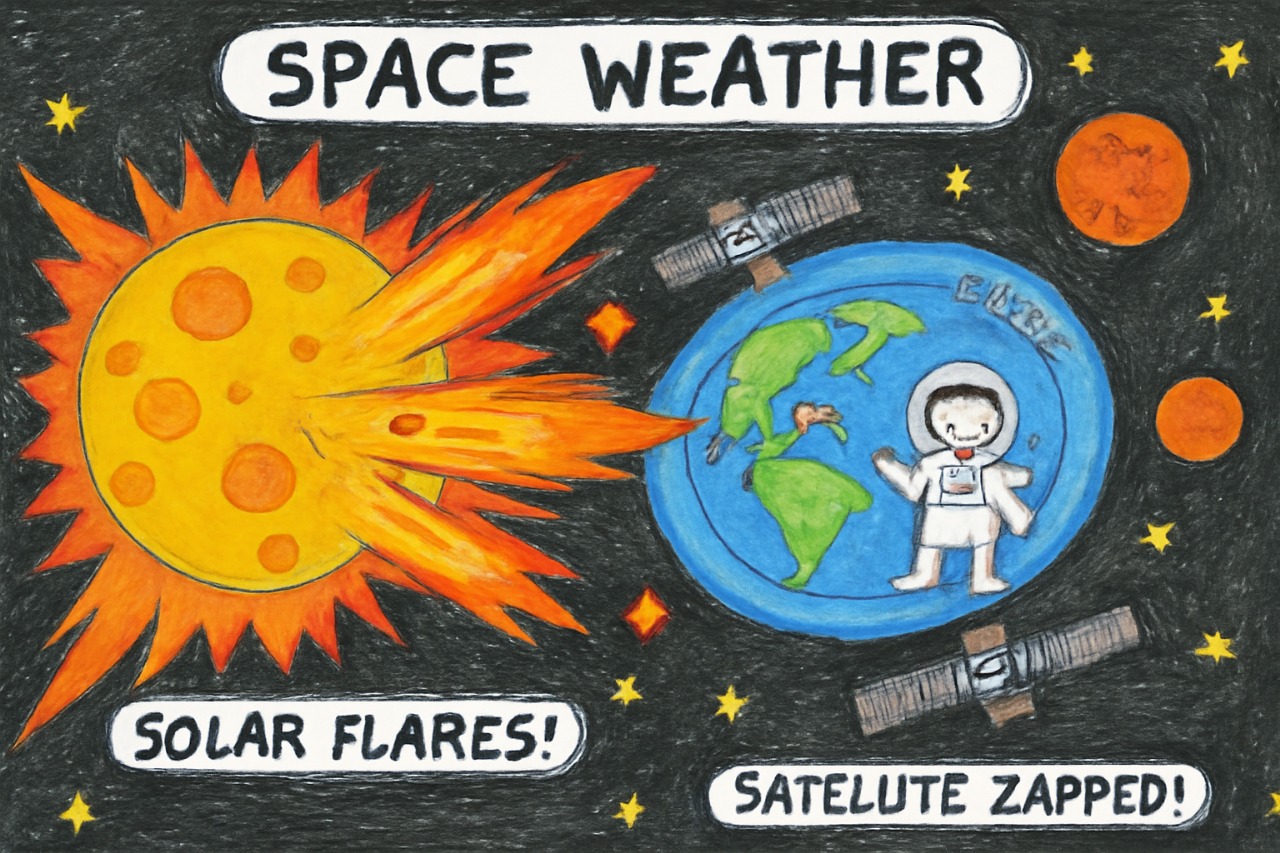 SPACE WEATHER
SOLAR FLARES!
SATELUTE ZAPPED!